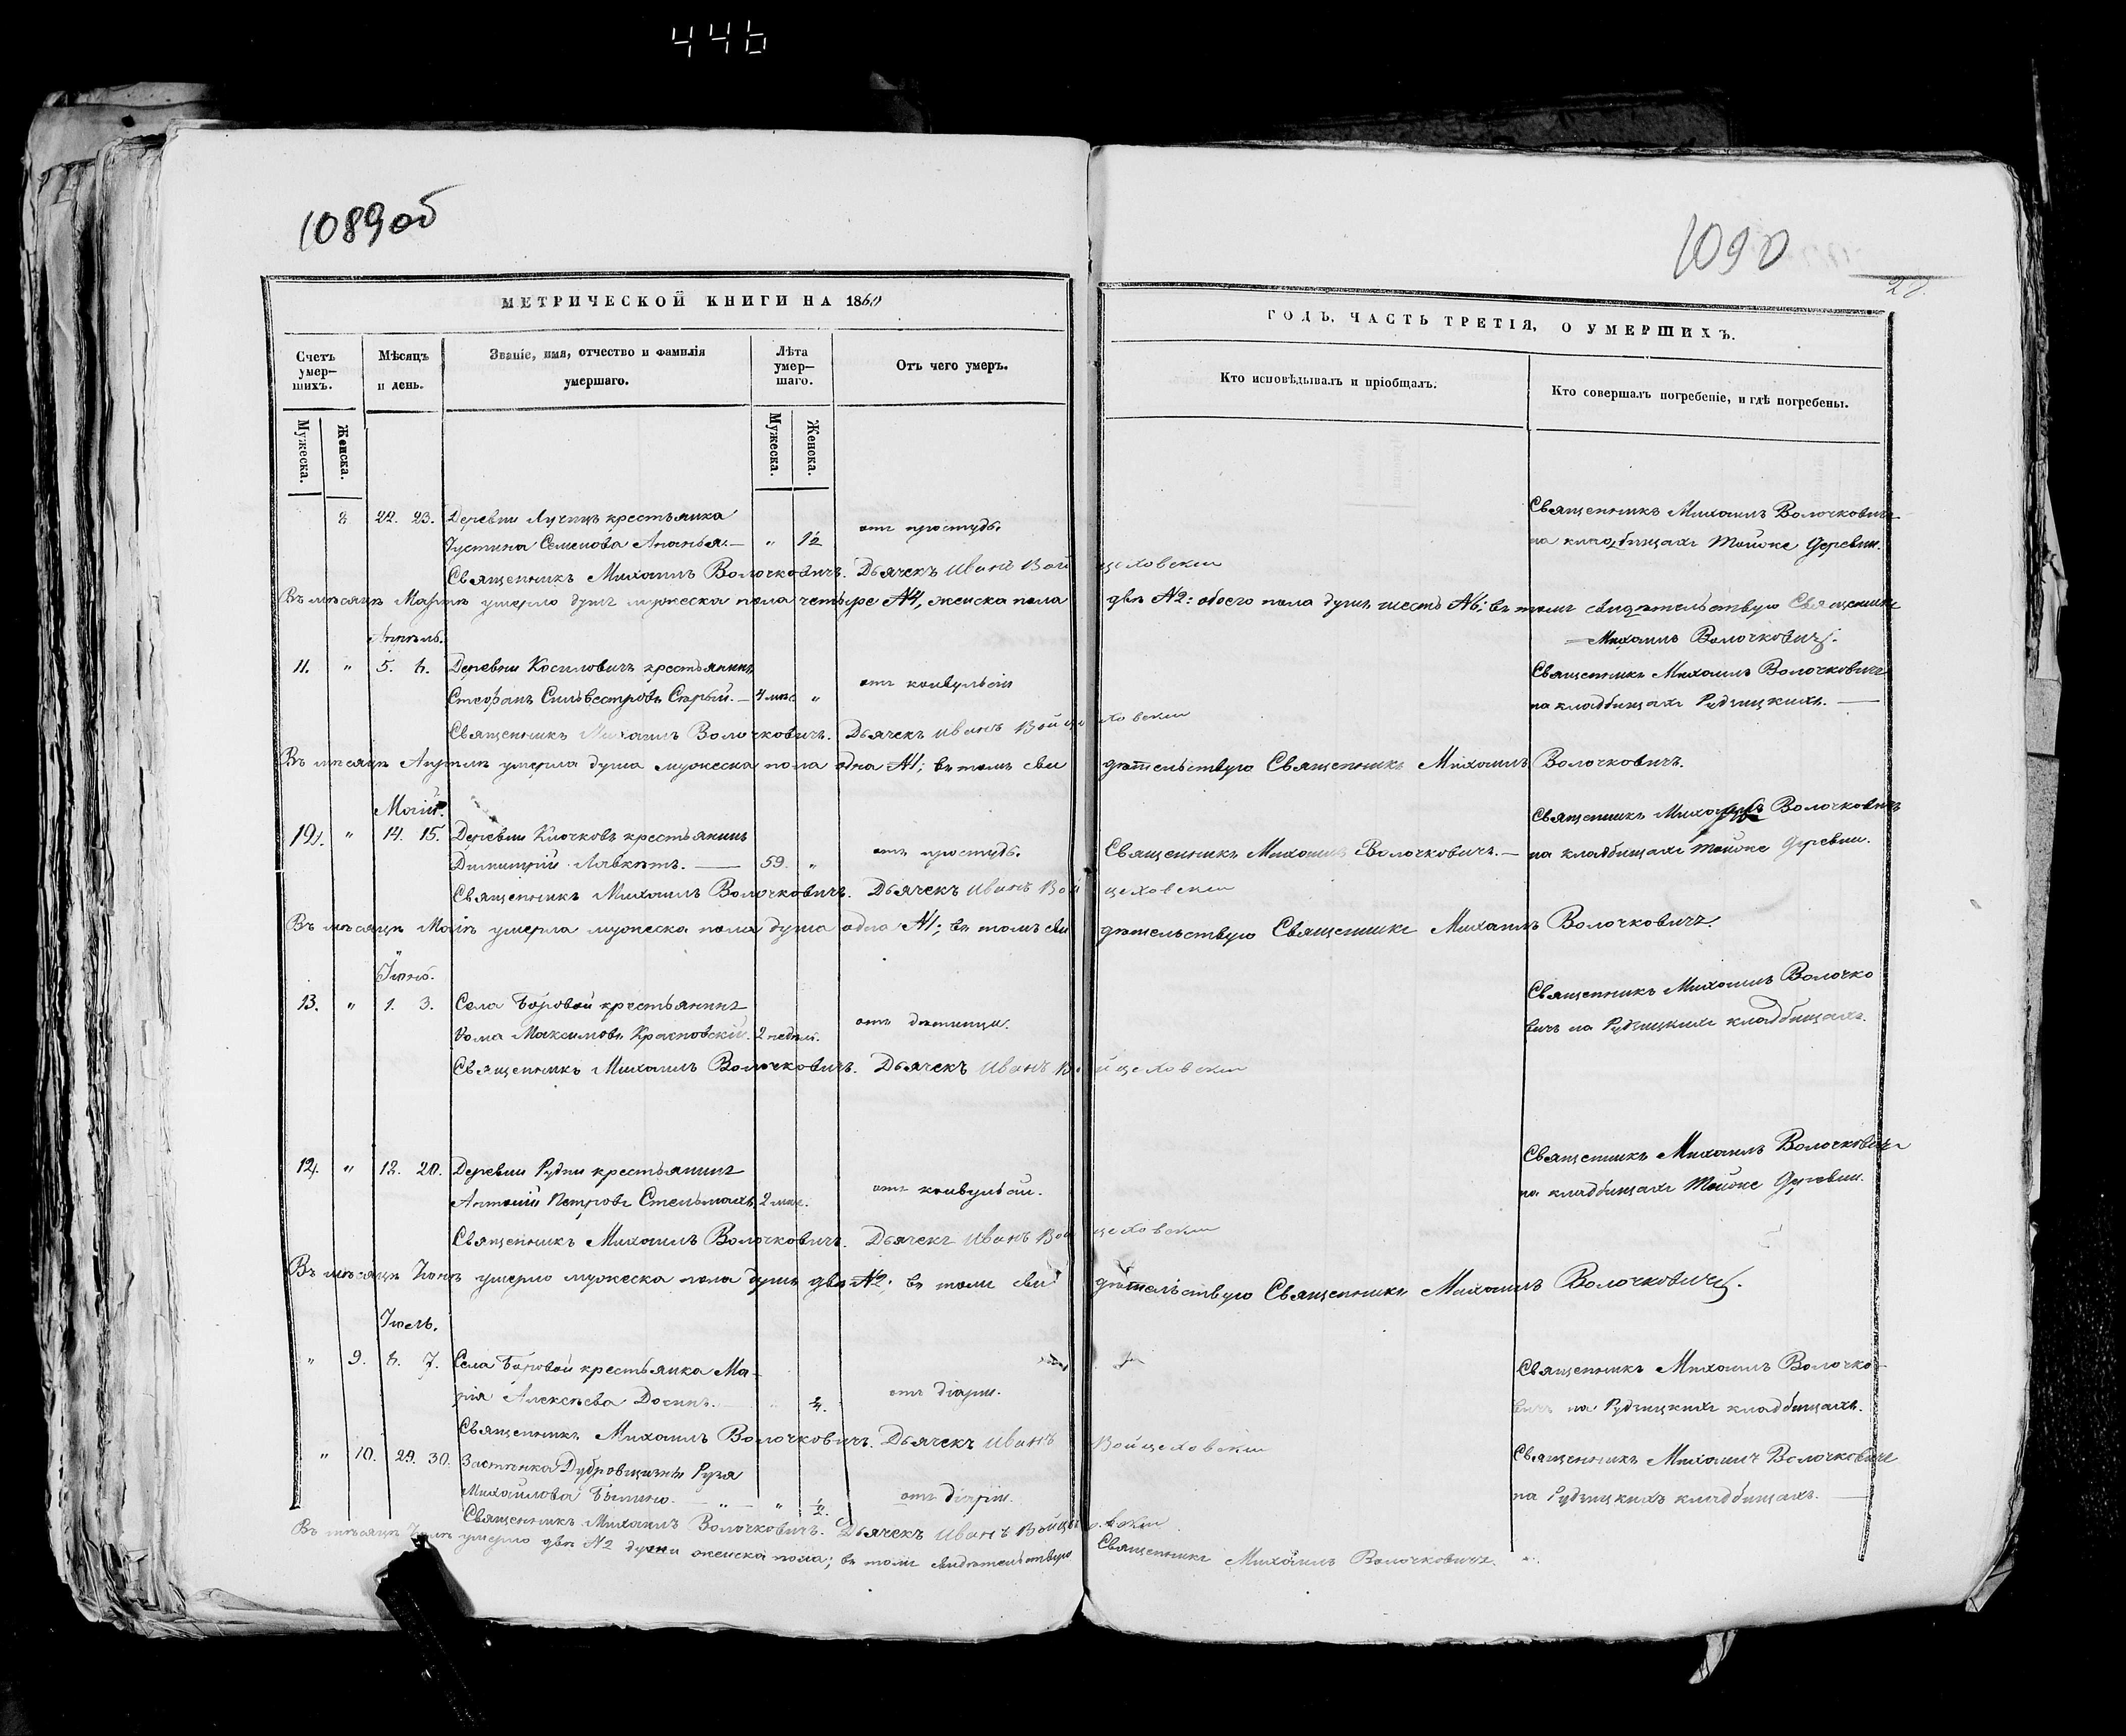 446
1089об
МЕТРИЧЕСКОЙ КНИГИ НА 1860
Счетъ умер-шихъ.
Мѣсяцъ и день.
Званіе, имя, отчество и фамилія умершаго.
Лѣта умер-шаго.
Отъ чего умеръ.
Мужеска.
Женска.
Мужеска.
Женска.
8 22. 23. Деревни Лучицъ крестьянка
Іустина Семенова Ананья. — " 1½ отъ простуды.
Священникъ Михаилъ Волочковичъ. Дьячекъ Иванъ Войцеховскій
Въ мѣсяцѣ Мартѣ умерло душъ мужеска пола четыре №4, женска пола двѣ №2: обоего пола душъ шесть №6; въ томъ свидѣтельствую Священникъ
Михаилъ Волочковичъ.
Апрѣль.
11. " 5. 6. Деревни Косиловичъ крестьянинъ
Стефанъ Сильвестровъ Старый. — 4 мѣс. " отъ конвульсіи
Священникъ Михаилъ Волочковичъ. Дьячекъ Иванъ Войцеховскій
Въ мѣсяцѣ Апрѣлѣ умерла душа мужеска пола одна №1; въ томъ свидѣтельствую Священникъ Михаилъ Волочковичъ.
Маій.
12. " 14. 15. Деревни Клочковъ крестьянинъ
Димитрій — 59. " отъ простуды.
Священникъ Михаилъ Волочковичъ. Дьячекъ Иванъ Войцеховскій
Въ мѣсяцѣ Маіѣ умерла мужеска пола душа одна №1; въ томъ свидѣтельствую Священникъ Михаилъ Волочковичъ.
Іюнь.
13. " 1. 3. Села Боровой крестьянинъ
Ѳома Максимовъ Красновскій. 2 недѣли.
Священникъ Михаилъ Волочковичъ. Дьячекъ Иванъ Войцеховскій
14. " 18. 20. Деревни Рудни крестьянинъ
Антоній Петровъ Стельмахъ. 2 мѣс. отъ конвульсіи.
Священникъ Михаилъ Волочковичъ. Дьячекъ Иванъ Войцеховскій
Въ мѣсяцѣ Іюнѣ умерло мужеска пола душъ двѣ №2; въ томъ свидѣтельствую Священникъ Михаилъ Волочковичъ.
Іюль.
" 9. 6. 7. Села Боровой крестьянка Ма-
рія Алексѣева отъ діаріи.
Священникъ Михаилъ Волочковичъ. Дьячекъ Иванъ Войцеховскій
" 10. 29. 30. Застѣнка Дубровщизны
Михайлова — " — " ½. отъ діаріи.
Священникъ Михаилъ Волочковичъ. Дьячекъ Иванъ Войцеховскій
Въ мѣсяцѣ Іюлѣ умерло двѣ №2 души женска пола; въ томъ свидѣтельствую Священникъ Михаилъ Волочковичъ.
1090
ГОДЪ, ЧАСТЬ ТРЕТІЯ, О УМЕРШИХЪ.
Кто исповѣдывалъ и пріобщалъ.
Кто совершалъ погребеніе, и гдѣ погребены.
Священникъ Михаилъ Волочковичъ
на кладбищахъ тойже деревни.
Священникъ Михаилъ Волочковичъ
на кладбищахъ Рудницкихъ.
Священникъ Михаилъ Волочковичъ. —
Священникъ Михаилъ Волочковичъ
на кладбищахъ тойже деревни.
Священникъ Михаилъ Волочко
вичъ на Рудницкихъ кладбищахъ.
Священникъ Михаилъ Волочковичъ
на кладбищахъ тойже деревни.
Священникъ Михаилъ Волочко-
вичъ на Рудницкихъ кладбищахъ.
Священникъ Михаилъ Волочковичъ
на Рудницкихъ кладбищахъ.